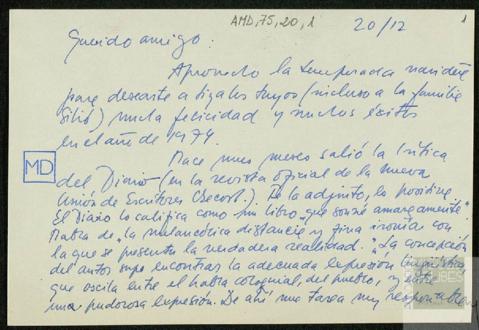 AMD, 75, 20, 1
20/12
1
Querido amigo:
Aprovecho la temporada navideña
para desearte a ti y a los tuyos (incluso a la familia
) mucha felicidad y muchos éxitos
en el año de 1974.
Hace unos meses salió la crítica
MD
del Diario (en la revista oficial de la nueva
Unión de Escritores Checos). Te la adjunto, la positiva
El Diario lo califica como un libro "que sonríe amargamente".
Habla de "la melancólica distancia y fina ironía con
la que se presenta la verdadera realidad." "La concepción
del autor supo encontrar la adecuada expresión lingüística
que oscila entre el habla coloquial del pueblo, y
una pudorosa expresión. De ahí una tarea muy responsable